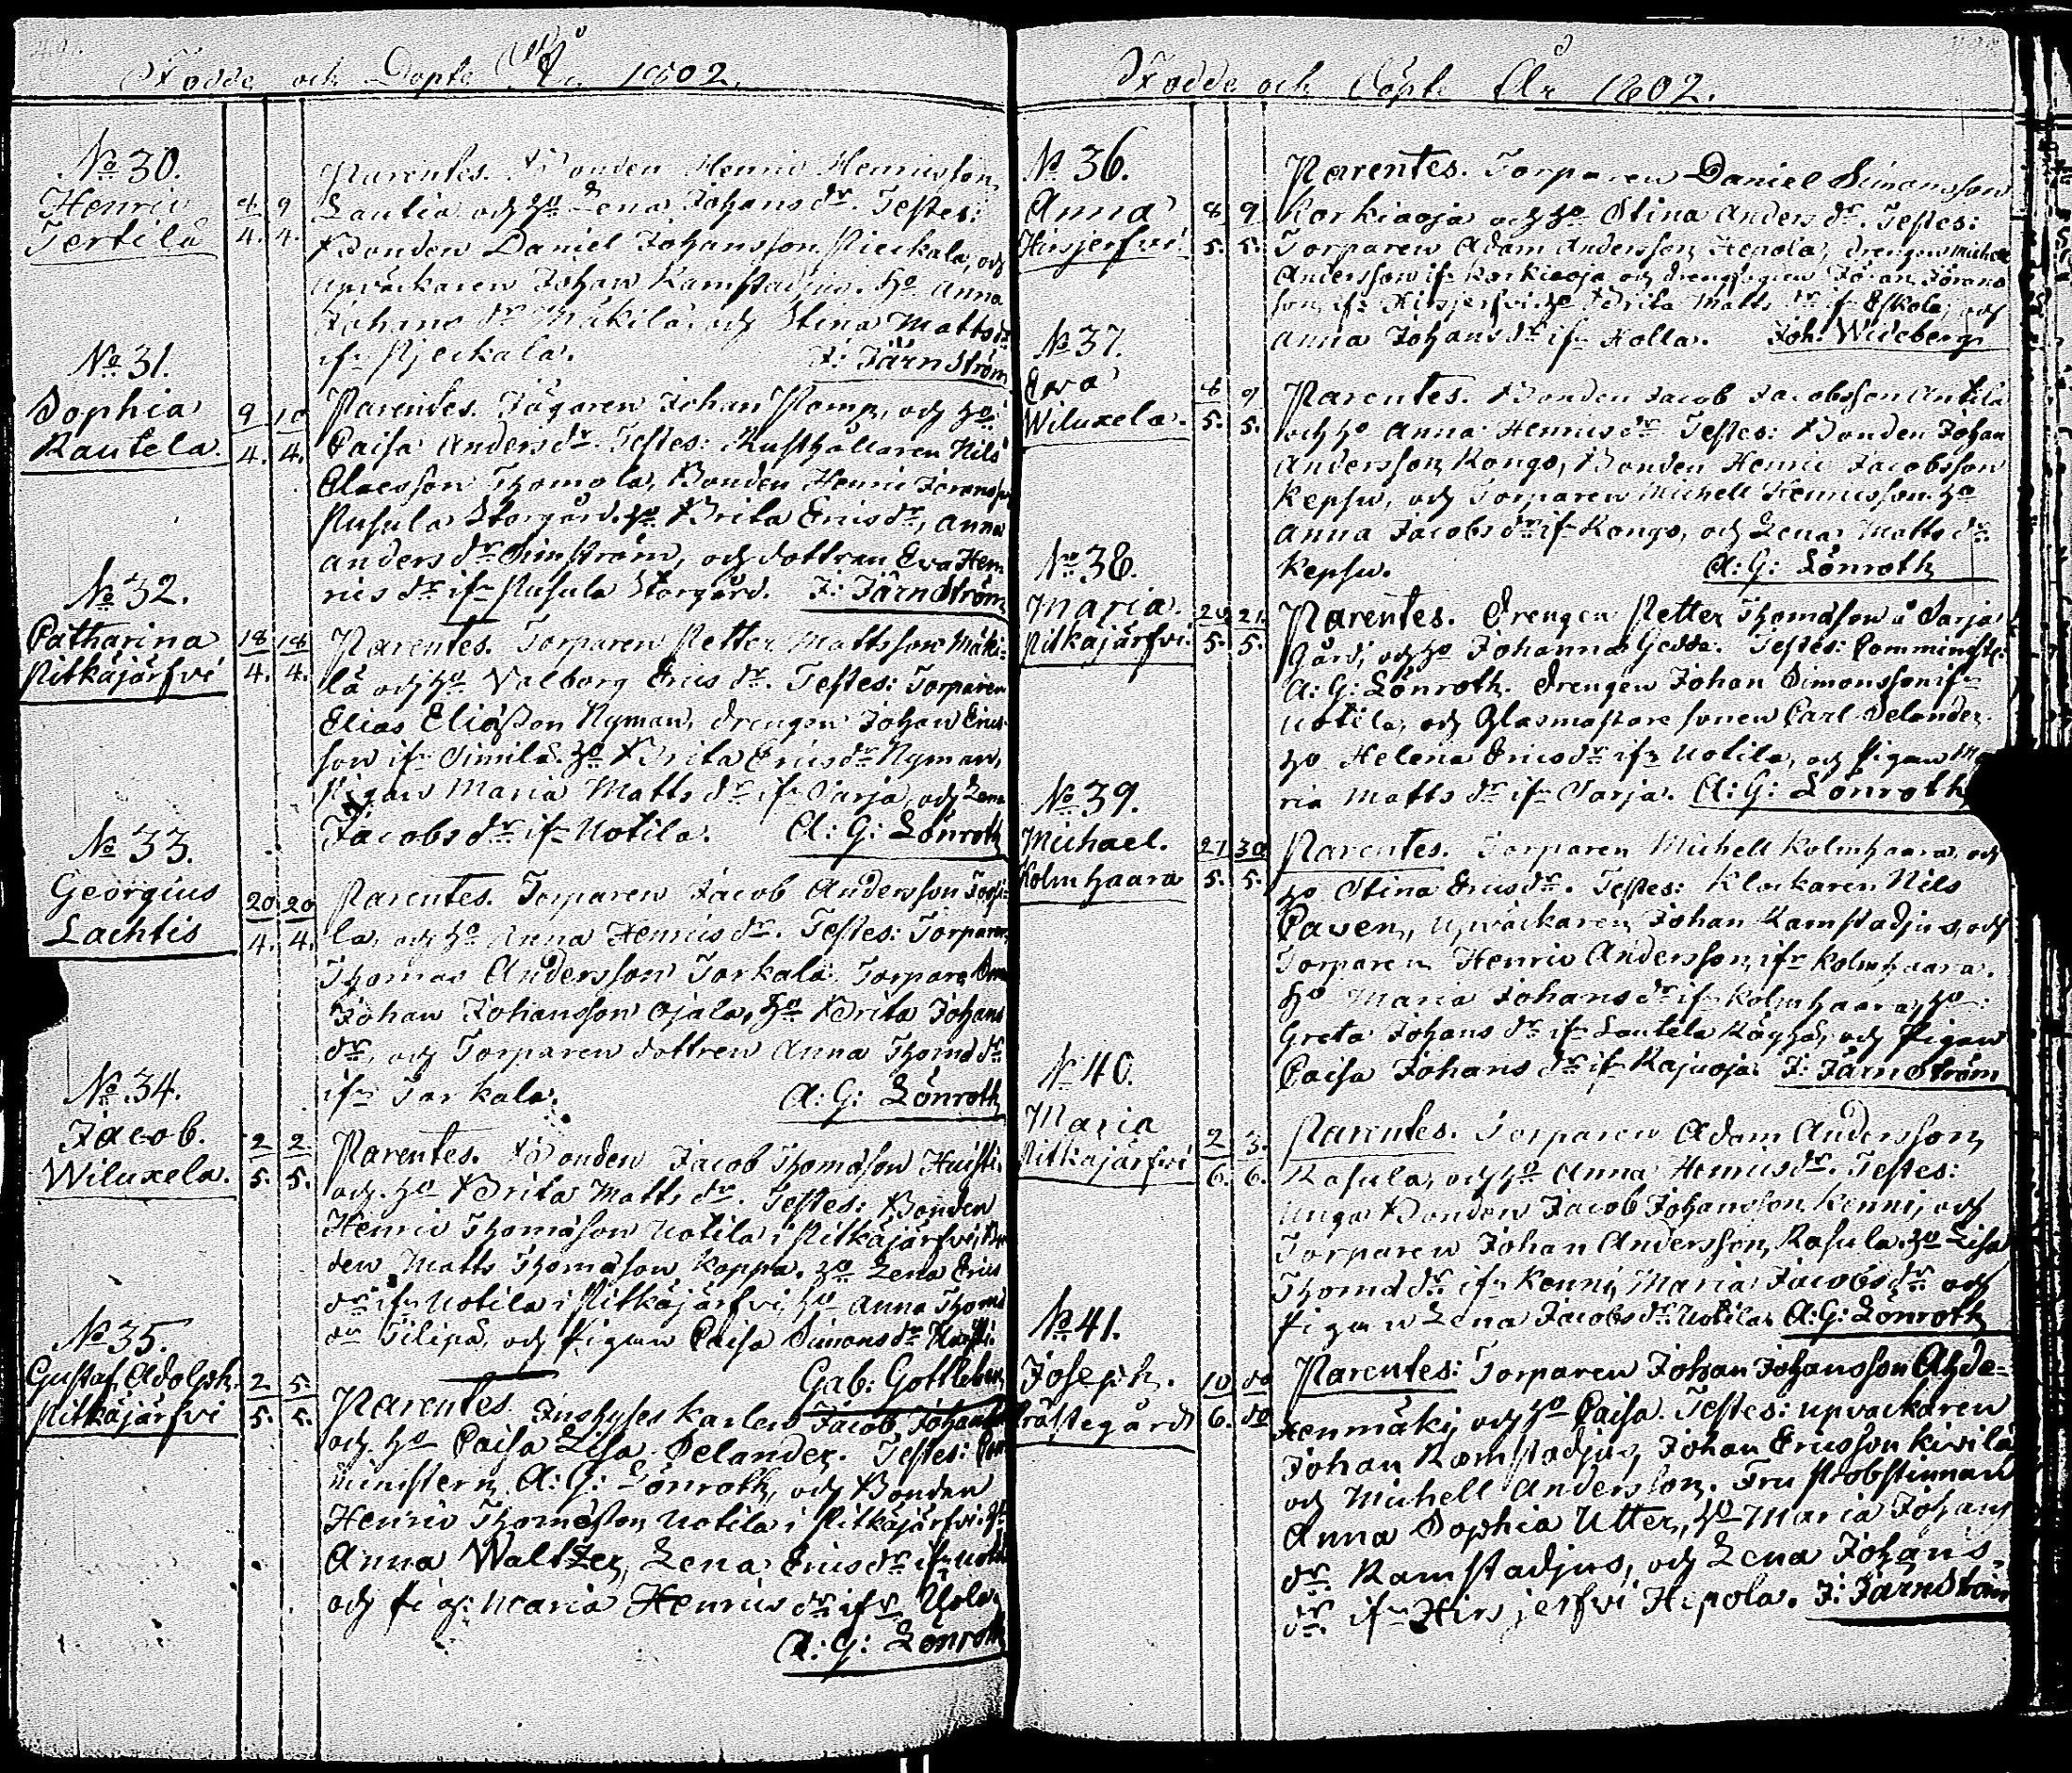 Födde och Döpte År 1802.
No 30.
Henric
Tertilä
4/4. 9/4.
Parentes. Bonden Henric Henricsson
Lautia och ho Lena Johans dr. Testes:
Bonden Daniel Johansson Pieckala, och
upväckaren Johan Ramstadjus. ho Anna
Johans dr Mäkilä, och Stina Matts dr
ifr Pieckala. J: Järnström
No 31.
Sophia
Rautela.
9/4. 10/4.
Parentes. Jägaren Johan Pomp, och ho
Caisa Anders dr. Testes: Rusthållaren Nils
Claesson Thomola, Bonden Henric Göransson
Pusula Storgård. ho Brita Erics dr, Anna
Anders dr Simström, och dottren Eva Hen
rics dr ifr Pusula Storgård. J: Järnström
No 32.
Catharina
Pitkäjärfvi
18/4. 18/4.
Parentes. Torparen Petter Mattsson Mäki-
lä och ho Valborg Erics dr. Testes: Torparen
Elias Eliasson Nyman, drengen Johan Erics
son ifr Simila. ho Brita Erics dr Nyman,
Pigan Maria Matts dr ifr Sarja, och Lena
Jacobs dr ifr Uotila. A: G: Lönroth
No 33.
Georgius
Lachtis
20/4. 20/4.
Parentes. Torparen Jacob Andersson
la, och ho Anna Henrics dr. Testes: Torparen
Thomas Andersson Torkala. Torpare
Johan Johansson Ojala, ho Brita Johans
dr, och Torparen dottren Anna Thoms dr
ifr Torkala. A: G: Lönroth
No 34.
Jacob.
Wiluxela.
2/5. 2/5.
Parentes. Bonden Jacob Thomasson Huisti
och ho Brita Matts dr. Testes: Bonden
Henric Thomasson Uotila i Pitkäjärfvi, Bon
den Matts Thomasson Kappa. ho Lena Erics
dr ifr Uotila i Pitkäjärfvi, ho Anna Thoms
dr Filipa, och Pigan Caisa Simons dr Huisti.
Gab: Gottleben
No 35.
Gustaf Adolph.
Pitkäjärfvi
2/5. 5/5.
Parentes. Inshyses Karlen Jacob Johansson
och ho Caisa Lisa Selander. Testes: Com
ministern A: G: Lönroth, och Bonden
Henric Thomasson Uotila i Pitkäjärfvi. ho
Anna Waltzer, Lena Erics dr ifr Uotila
och Pig: Maria Henrics dr ifr
A: G: Lönroth
Födde och Döpte År 1802.
No 36.
Anna
Hirsjerfvi
8/5. 9/5.
Parentes. Torparen Daniel Simonsson
Korkiaoja och ho Stina Anders dr. Testes:
Torparen Adam Andersson Hepola, drengen Michell
Andersson ifr Korkiaoja och drengen Göran Görans
son ifr Hirsjerfvi. ho Brita Matts dr ifr Eskola, och
Anna Johans dr ifr Holla. Joh: Wideberg
No 37.
Eva
Wiluxela.
8/5. 9/5.
Parentes. Bonden Jacob Jacobsson Antila
och ho Anna Henrics dr Testes: Bonden Johan
Andersson Kongo, Bonden Henric Jacobsson
Kepsu, och Torparen Michell Henricsson. ho
Anna Jacobs dr ifr Kongo, och Lena Matts dr
Kepsu. A: G: Lönroth
No 38.
Maria.
Pitkäjärfvi.
20/5. 21/5.
Parentes. Drengen Petter Thomasson å Sarja
Gård, och ho Johanna Gedda. Testes: Comminist:
A: G: Lönroth. Drengen Johan Simonsson ifr
Uotila, och Glasmästare sonen Carl Selander.
ho Helena Erics dr ifr Uotila, och Pigan Ma
ria Matts dr ifr Sarja. A: G: Lönroth
No 39.
Michael.
Kolmhaara
27/5. 30/5.
Parentes. Torparen Michell Kolmhaara, och
ho Stina Erics dr. Testes: Klockaren Nils
Caven, upväckaren Johan Ramstadjus, och
Torparen Henric Andersson, ifr Kolmhaara.
ho Maria Johans dr ifr Kolmhaara, ho
Greta Johans dr ifr Lautela Räyhä, och Pigan
Caisa Johans dr ifr Rajuoja. J: Järnström
No 40.
Maria
Pitkäjärfvi
2/6. 3/6.
Parentes. Torparen Adam Andersson
Rasula, och ho Anna Henrics dr. Testes:
Unga Bonden Jacob Johansson Kenni, och
Torparen Johan Andersson Rasula. ho Lisa
Thoms dr ifr Kenni, Maria Jacobs dr och
Pigan Lena Jacobs dr Uotila. A: G: Lönroth
No 41.
Joseph.
Prästegårds
10/6. do/do
Parentes: Torparen Johan Johansson Ahde-
kenmäki, och ho Caisa. Testes: upväckaren
Johan Ramstadjus, Johan Ericsson Kivilä
och Michell Andersson. Fru Probstinnan
Anna Sophia Utter, ho Maria Johans
dr. Ramstadjus, och Lena Johans-
dr. ifr Hirsjerfvi Hepola. J: Järnström